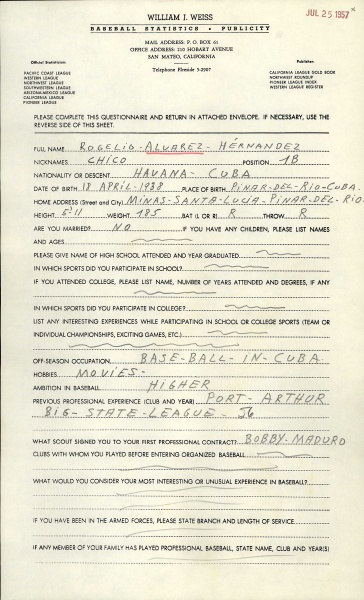 WILLIAM J. WEISS
JUL 25 1957
BASEBALL STATISTICS • PUBLICITY
MAIL ADDRESS: P. O. BOX 61
OFFICE ADDRESS: 210 HOBART AVENUE
SAN MATEO, CALIFORNIA
Telephone Fireside 5-2907
Official Statistician:
PACIFIC COAST LEAGUE
WESTERN LEAGUE
NORTHWEST LEAGUE
SOUTHWESTERN LEAGUE
ARIZONA-MEXICO LEAGUE
CALIFORNIA LEAGUE
PIONEER LEAGUE
Publisher:
CALIFORNIA LEAGUE GOLD BOOK
NORTHWEST ROUNDUP
PIONEER LEAGUE INDEX
WESTERN LEAGUE REGISTER
PLEASE COMPLETE THIS QUESTIONNAIRE AND RETURN IN ATTACHED ENVELOPE. IF NECESSARY, USE THE
REVERSE SIDE OF THIS SHEET.
FULL NAME ROGELIO-ALVAREZ-HERNANDEZ
NICKNAMES CHICO POSITION 1B
NATIONALITY OR DESCENT HAVANA-CUBA
DATE OF BIRTH 18 APRIL-1938 PLACE OF BIRTH PINAR-DEL-RIO-CUBA.
HOME ADDRESS (Street and City) MINAS-SANTA-LUCIA-PINAR-DEL-RIO.
HEIGHT 5'11 WEIGHT 185 BAT (L OR R) R THROW R
ARE YOU MARRIED? NO IF YOU HAVE ANY CHILDREN, PLEASE LIST NAMES
AND AGES
PLEASE GIVE NAME OF HIGH SCHOOL ATTENDED AND YEAR GRADUATED
IN WHICH SPORTS DID YOU PARTICIPATE IN SCHOOL?
IF YOU ATTENDED COLLEGE, PLEASE LIST NAME, NUMBER OF YEARS ATTENDED AND DEGREES, IF ANY
IN WHICH SPORTS DID YOU PARTICIPATE IN COLLEGE?
LIST ANY INTERESTING EXPERIENCES WHILE PARTICIPATING IN SCHOOL OR COLLEGE SPORTS (TEAM OR
INDIVIDUAL CHAMPIONSHIPS, EXCITING GAMES, ETC.)
OFF-SEASON OCCUPATION BASE-BALL-IN-CUBA
HOBBIES MOVIES-
AMBITION IN BASEBALL HIGHER
PREVIOUS PROFESSIONAL EXPERIENCE (CLUB AND YEAR) PORT-ARTHUR
BIG-STATE-LEAGUE-56
WHAT SCOUT SIGNED YOU TO YOUR FIRST PROFESSIONAL CONTRACT? BOBBY-MADURO
CLUBS WITH WHOM YOU PLAYED BEFORE ENTERING ORGANIZED BASEBALL
WHAT WOULD YOU CONSIDER YOUR MOST INTERESTING OR UNUSUAL EXPERIENCE IN BASEBALL?
IF YOU HAVE BEEN IN THE ARMED FORCES, PLEASE STATE BRANCH AND LENGTH OF SERVICE
IF ANY MEMBER OF YOUR FAMILY HAS PLAYED PROFESSIONAL BASEBALL, STATE NAME, CLUB AND YEAR(S)